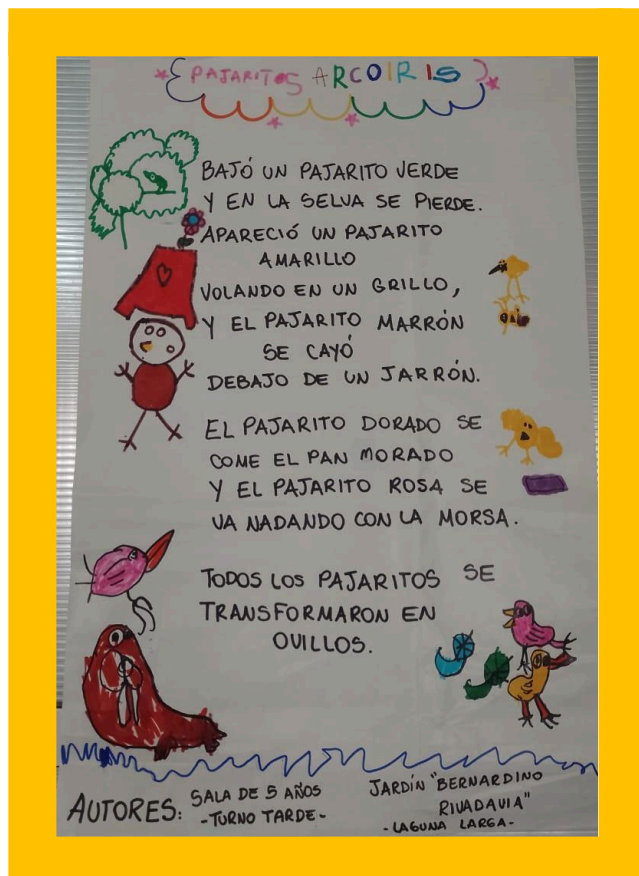 PAJARITOS ARCOIRIS
BAJÓ UN PAJARITO VERDE
Y EN LA SELVA SE PIERDE.
APARECIÓ UN PAJARITO
AMARILLO
VOLANDO EN UN GRILLO,
Y EL PAJARITO MARRÓN
SE CAYÓ
DEBAJO DE UN JARRÓN.
EL PAJARITO DORADO SE
COME EL PAN MORADO
Y EL PAJARITO ROSA SE
VA NADANDO CON LA MORSA.
TODOS LOS PAJARITOS SE
TRANSFORMARON EN
OVILLOS.
AUTORES: SALA DE 5 AÑOS
-TURNO TARDE-
JARDÍN "BERNARDINO
RIVADAVIA"
-LAGUNA LARGA-